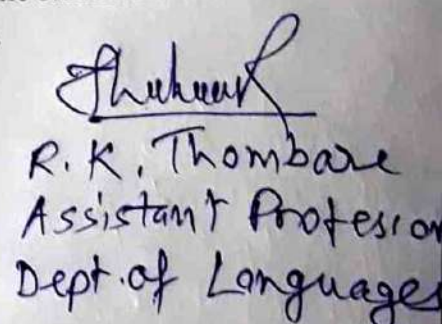 R. K. Thombare
Assistant Profesior
Dept. of Languages